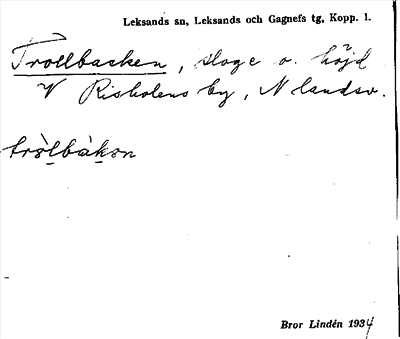 Leksands sn, Leksands och Gagnefs tg, Kopp. l.
Trollbacken, sloge o. höjd
V Risholens by, N landsv.
tròlbàkən
Bror Lindén 1934